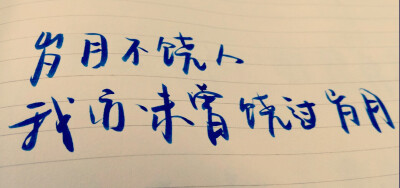 岁月不饶人
我亦未曾饶过岁月